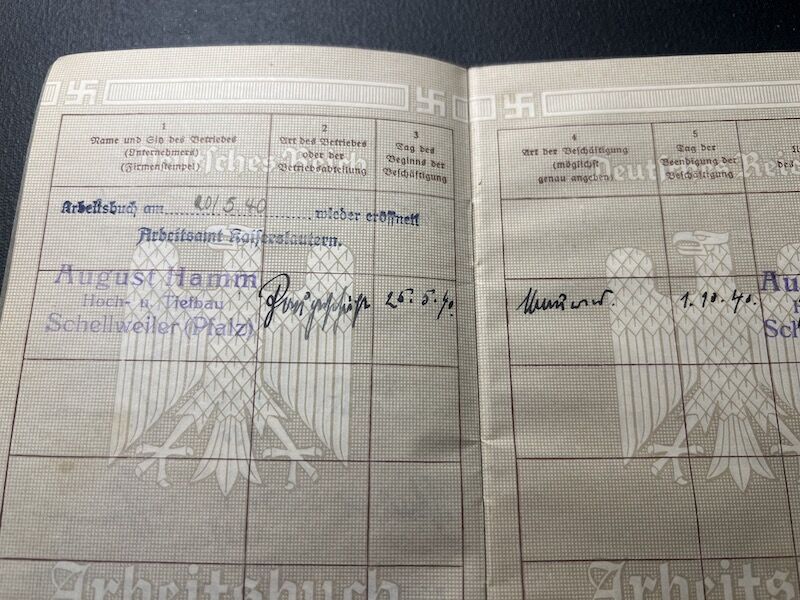 1
Name und Sitz des Betriebes
(Unternehmers)
(Firmenstempel)
2
Art des Betriebes
oder der
Betriebsabteilung
3
Tag des
Beginns der
Beschäftigung
Deutsches Reich
Arbeitsbuch am 20/5.40 wieder eröffnet
Arbeitsamt Kaiserslautern.
August Hamm
Hoch- u. Tiefbau
Schellweiler (Pfalz)
Baugeschäft
25.5.40.
Arbeitsbuch
4
Art der Beschäftigung
(möglichst
genau angeben)
5
Tag der
Beendigung der
Beschäftigung
Deutsches Rei
1.10.40.
Arbeits